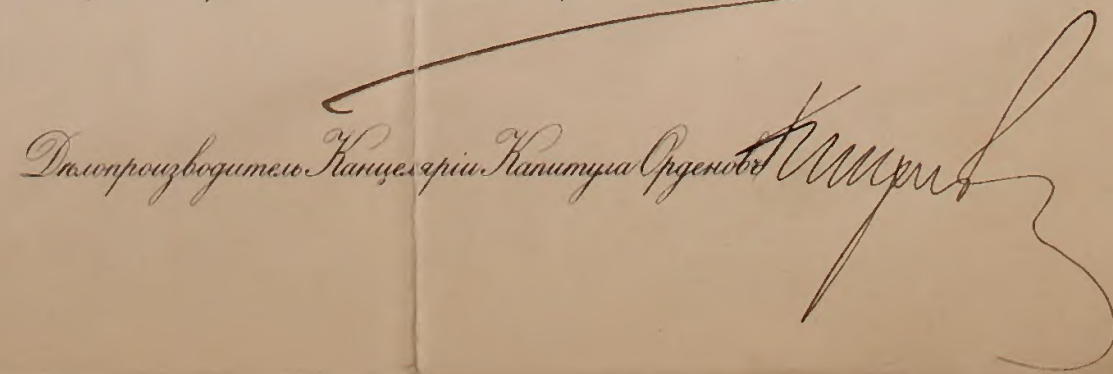 Дѣлопроизводитель Канцеляріи Капитула Орденовъ